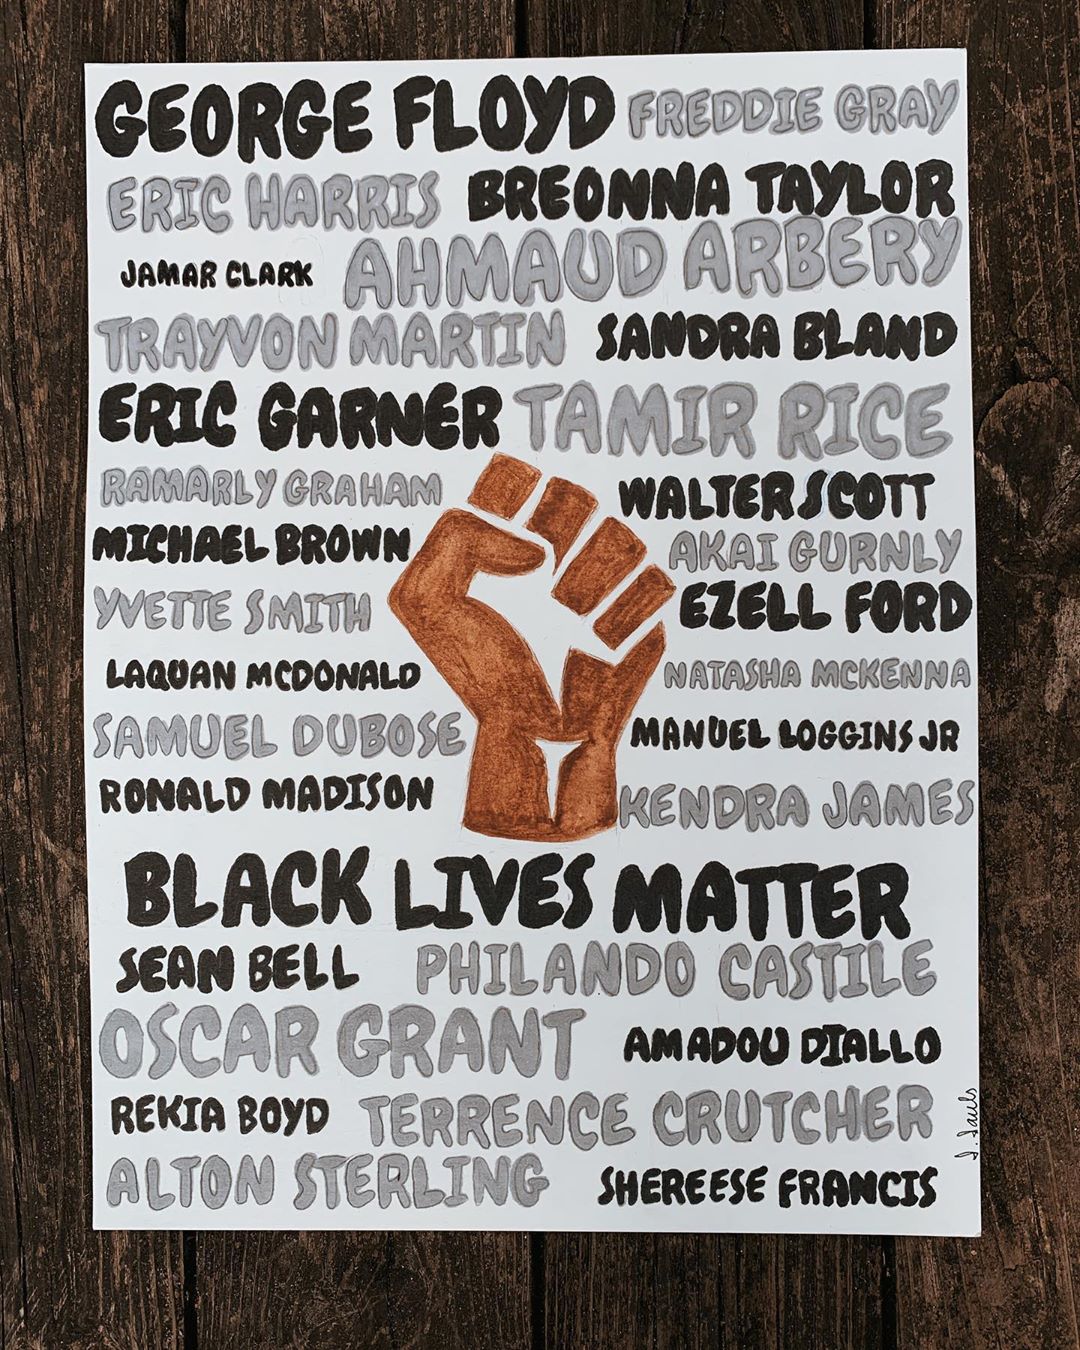 GEORGE FLOYD FREDDIE GRAY
ERIC HARRIS BREONNA TAYLOR
JAMAR CLARK AHMAUD ARBERY
TRAYVON MARTIN SANDRA BLAND
ERIC GARNER TAMIR RICE
RAMARLY GRAHAM WALTER SCOTT
MICHAEL BROWN AKAI GURNLY
YVETTE SMITH EZELL FORD
LAQUAN MCDONALD NATASHA MCKENNA
SAMUEL DUBOSE MANUEL LOGGINS JR
RONALD MADISON KENDRA JAMES
BLACK LIVES MATTER
SEAN BELL PHILANDO CASTILE
OSCAR GRANT AMADOU DIALLO
REKIA BOYD TERRENCE CRUTCHER
ALTON STERLING SHEREESE FRANCIS